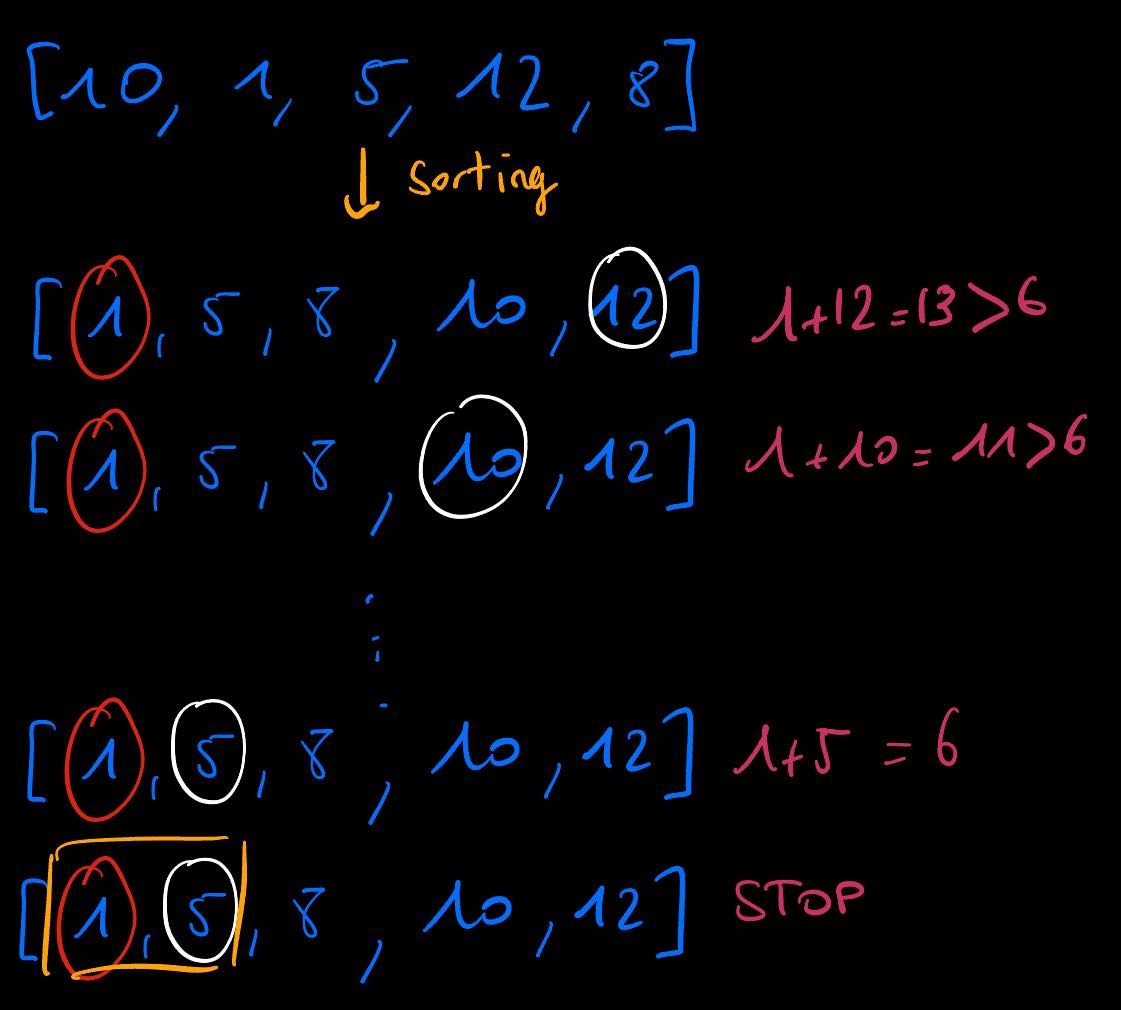 [10, 1, 5, 12, 8]
↓ Sorting
[1, 5, 8, 10, 12] 1+12=13>6
[1, 5, 8, 10, 12] 1+10=11>6
⋮
[1, 5, 8, 10, 12] 1+5=6
[1, 5, 8, 10, 12] STOP